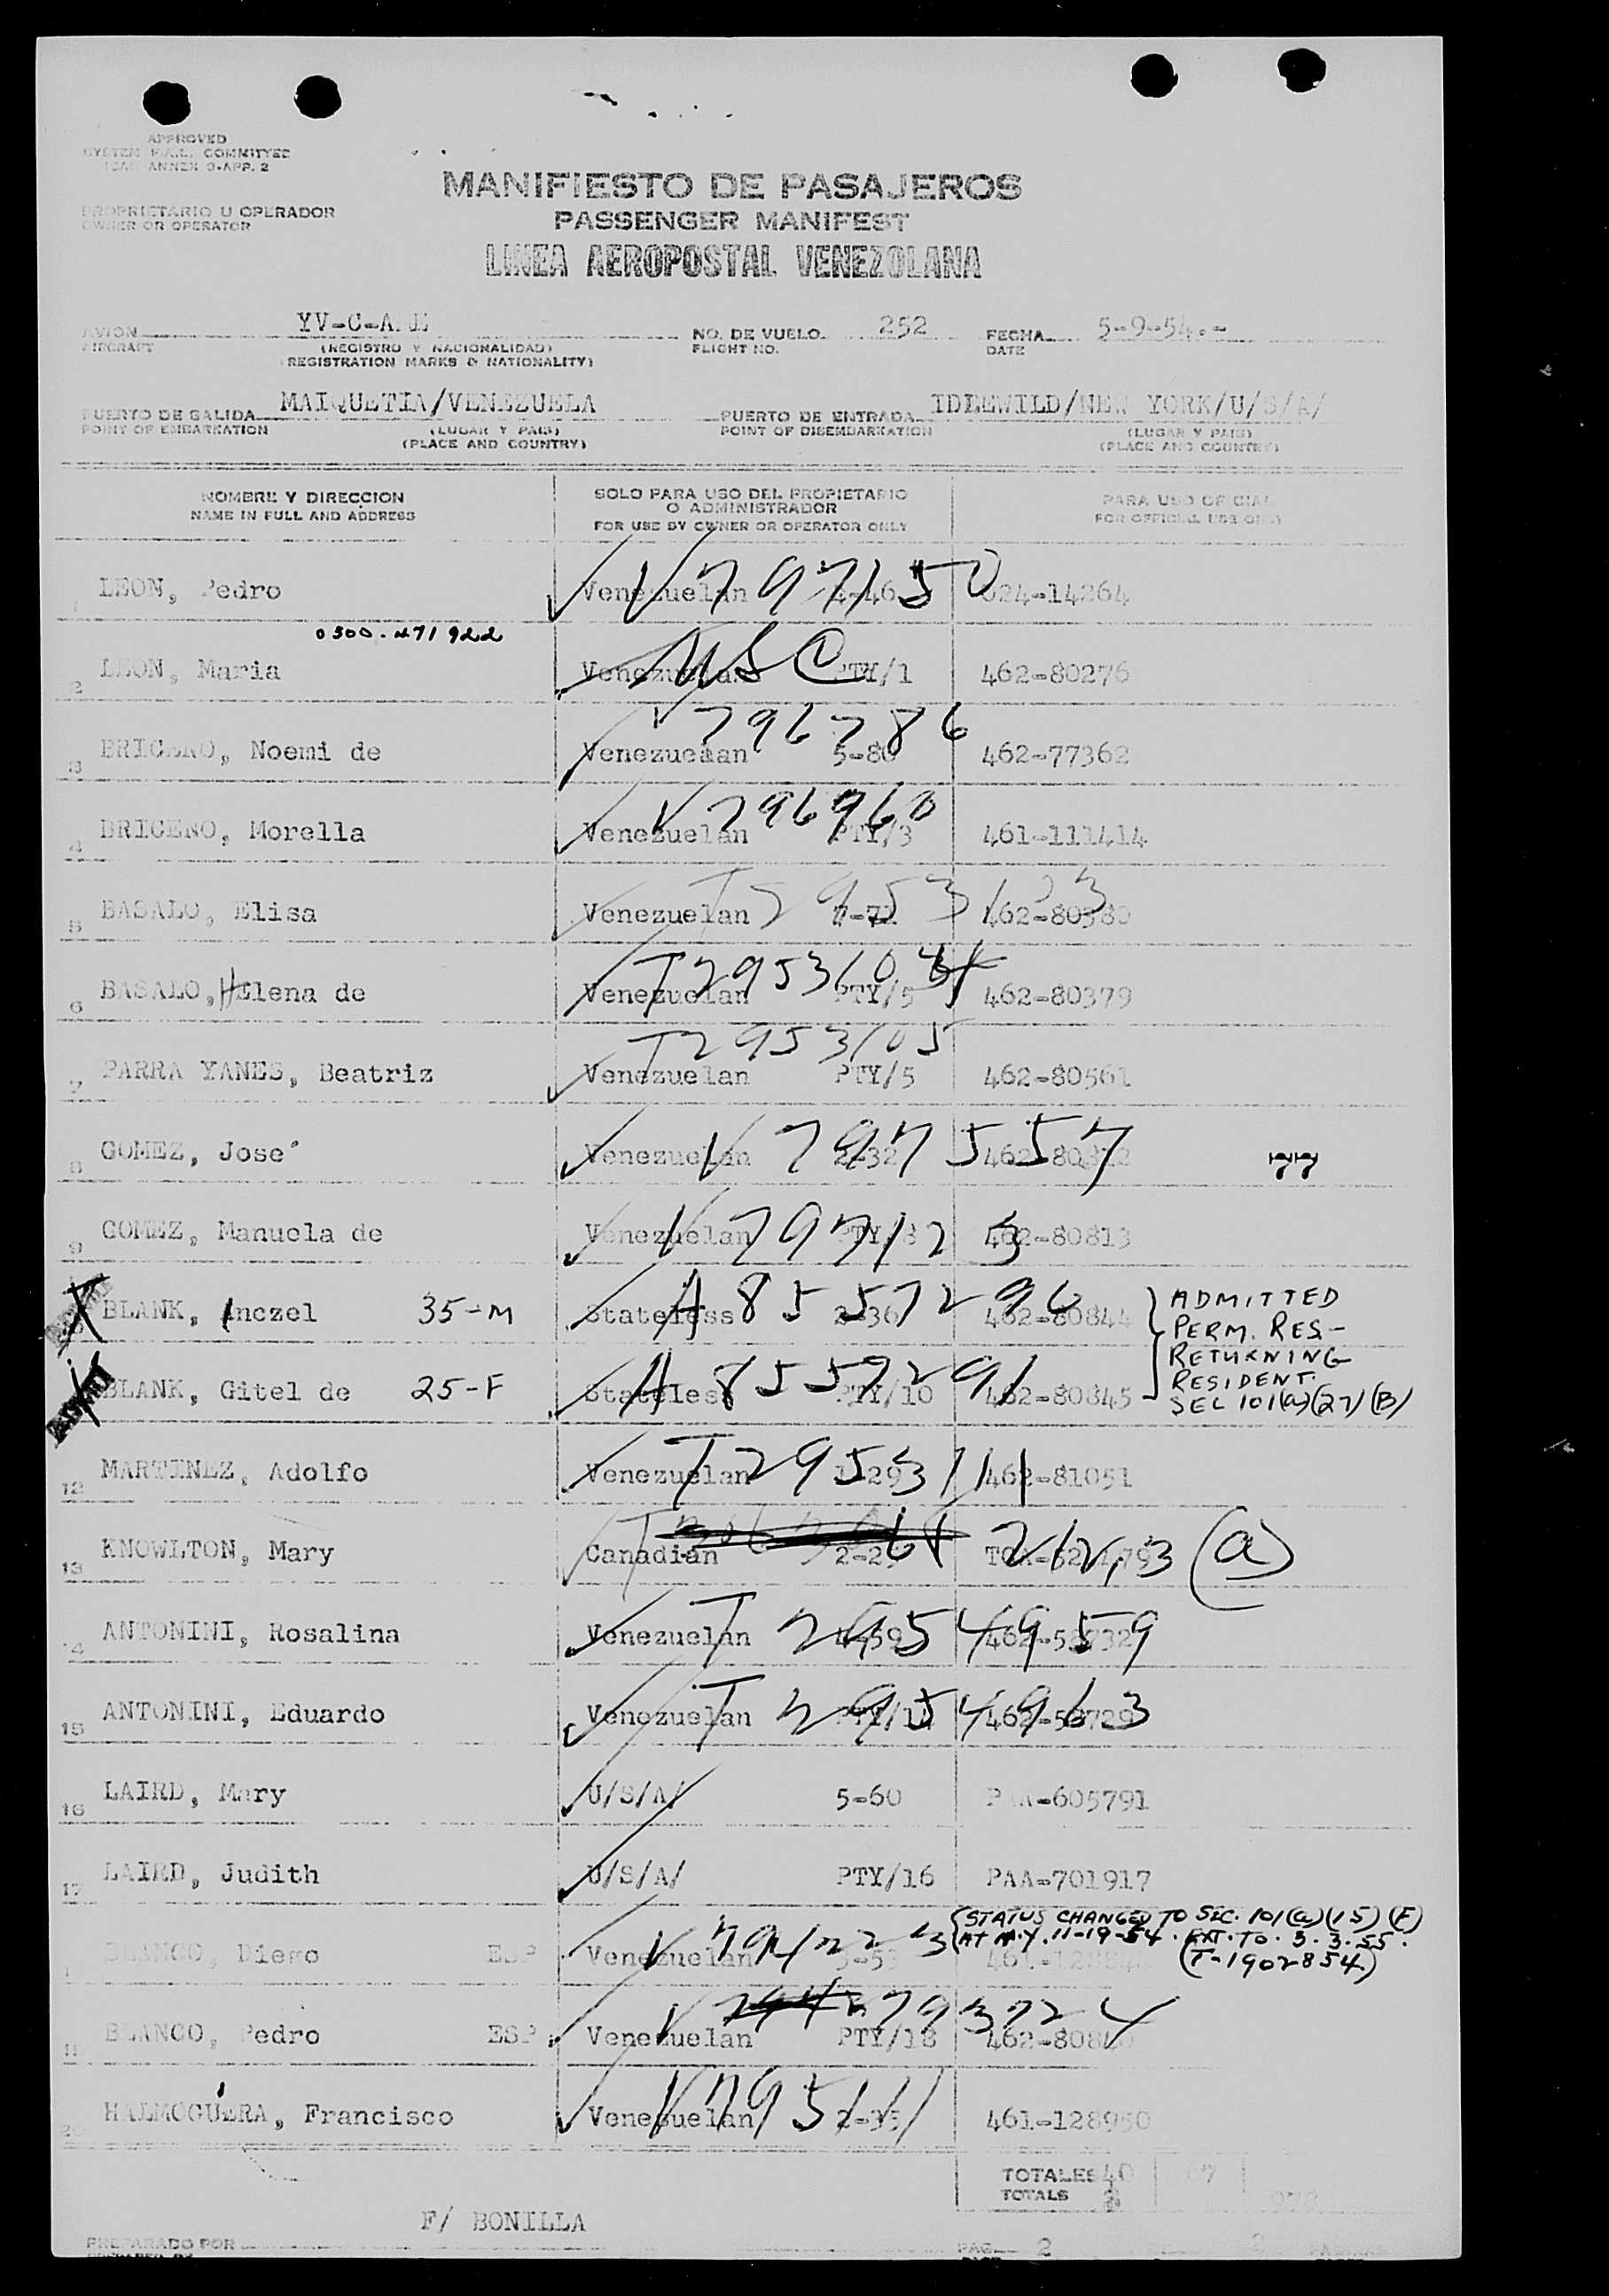 APPROVED
SYSTEM F.A.L. COMMITTEE
ICAO ANNEX 9-APP. 2
MANIFIESTO DE PASAJEROS
PASSENGER MANIFEST
PROPRIETARIO U OPERADOR
OWNER OR OPERATOR
LINEA AEROPOSTAL VENEZOLANA
AVION YV-C-A.E NO. DE VUELO 252 FECHA 5-9-54.-
AIRCRAFT (REGISTRO Y NACIONALIDAD) FLIGHT NO. DATE
(REGISTRATION MARKS & NATIONALITY)
PUERTO DE SALIDA MAIQUETIA/VENEZUELA PUERTO DE ENTRADA IDLEWILD/NEW YORK/U/S/A/
POINT OF EMBARKATION (LUGAR Y PAIS) POINT OF DISEMBARKATION (LUGAR Y PAIS)
(PLACE AND COUNTRY) (PLACE AND COUNTRY)
NOMBRE Y DIRECCION SOLO PARA USO DEL PROPIETARIO PARA USO OFICIAL
O ADMINISTRADOR
NAME IN FULL AND ADDRESS FOR USE BY OWNER OR OPERATOR ONLY FOR OFFICIAL USE ONLY
1 LEON, Pedro Venezuelan 4-46 V797150 024-14264
0300.471922
2 LEON, Maria Venezuelan USC PTY/1 462-80276
3 BRICENO, Noemi de Venezuelan V796786 5-80 462-77362
4 BRICENO, Morella Venezuelan V796960 PTY/3 461-111414
5 BASALO, Elisa Venezuelan T2953103 462-80380
6 BASALO, HElena de Venezuelan T2953104 PTY/5 462-80379
7 PARRA YANES, Beatriz Venezuelan T2953105 PTY/5 462-80561
8 GOMEZ, Jose' Venezuelan V7975557 2-32 77
9 GOMEZ, Manuela de Venezuelan V797123 PTY/8 462-80813
BLANK, Inczel 35-M Stateless A8557290 2-36 462-80844
BLANK, Gitel de 25-F Stateless A8557291 PTY/10 462-80845
} ADMITTED
PERM. RES-
RETURNING
RESIDENT.
SEC 101(a)(27)(B)
12 MARTINEZ, Adolfo Venezuelan T2953111 462-81051
13 KNOWLTON, Mary Canadian 212.3 (a)
14 ANTONINI, Rosalina Venezuelan T2954959
15 ANTONINI, Eduardo Venezuelan T2954963
16 LAIRD, Mary U/S/A/ 5-60 PAA-605791
17 LAIRD, Judith U/S/A/ PTY/16 PAA-701917
STATUS CHANGED TO SEC. 101(a)(15)(F)
AT N.Y. 11-19-54. EXT. TO. 3.3.55.
(T-1902854)
BLANCO, Diego ESP Venezuelan
19 BLANCO, Pedro ESP. Venezuelan V793724 PTY/18
20 HALMOGUERA, Francisco Venezuelan V795111 461-128950
TOTALES 40
TOTALS
F/ BONILLA
PREPARADO POR PAG. 2